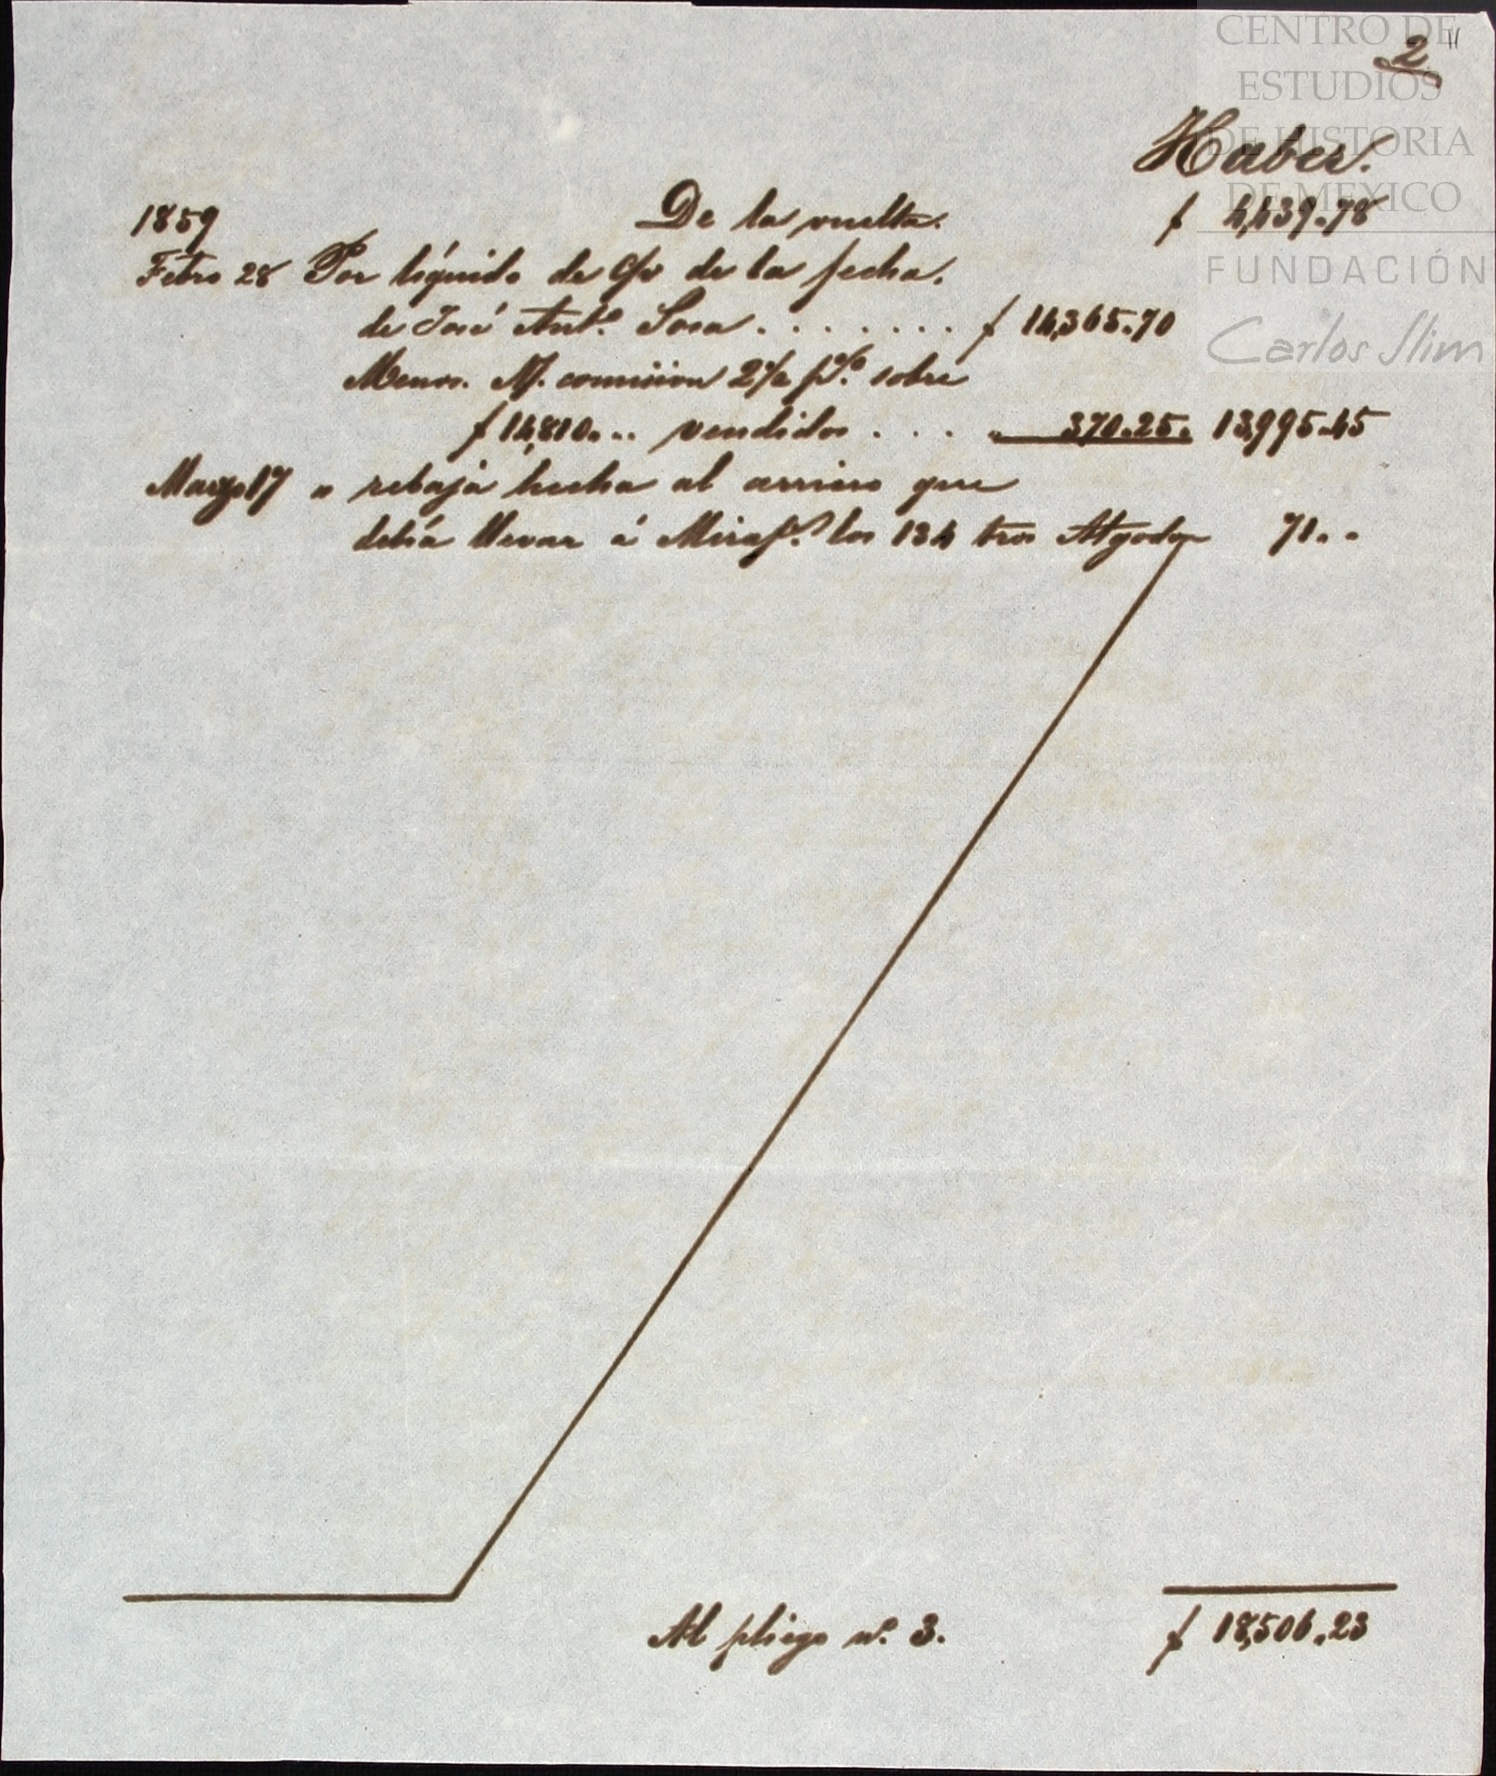 CENTRO DE
ESTUDIOS
DE HISTORIA
DE MEXICO
FUNDACIÓN
Carlos Slim
2
Haber.
1859 De la vuelta. $ 4,439.78
Febro 28 Por líquido de C/v de la fecha.
de José Anto. Sosa . . . . . . . . $ 14,365.70
Menos. N/. comision 2½ p%. sobre
$ 14,810. .. vendidos . . . . 370.25. 13,995.45
Marzo 17 " rebaja hecha al arriero que
debía llevar á Miraf. los 134 tros Algodon 71. .
Al pliego no. 3. $ 18,506.23